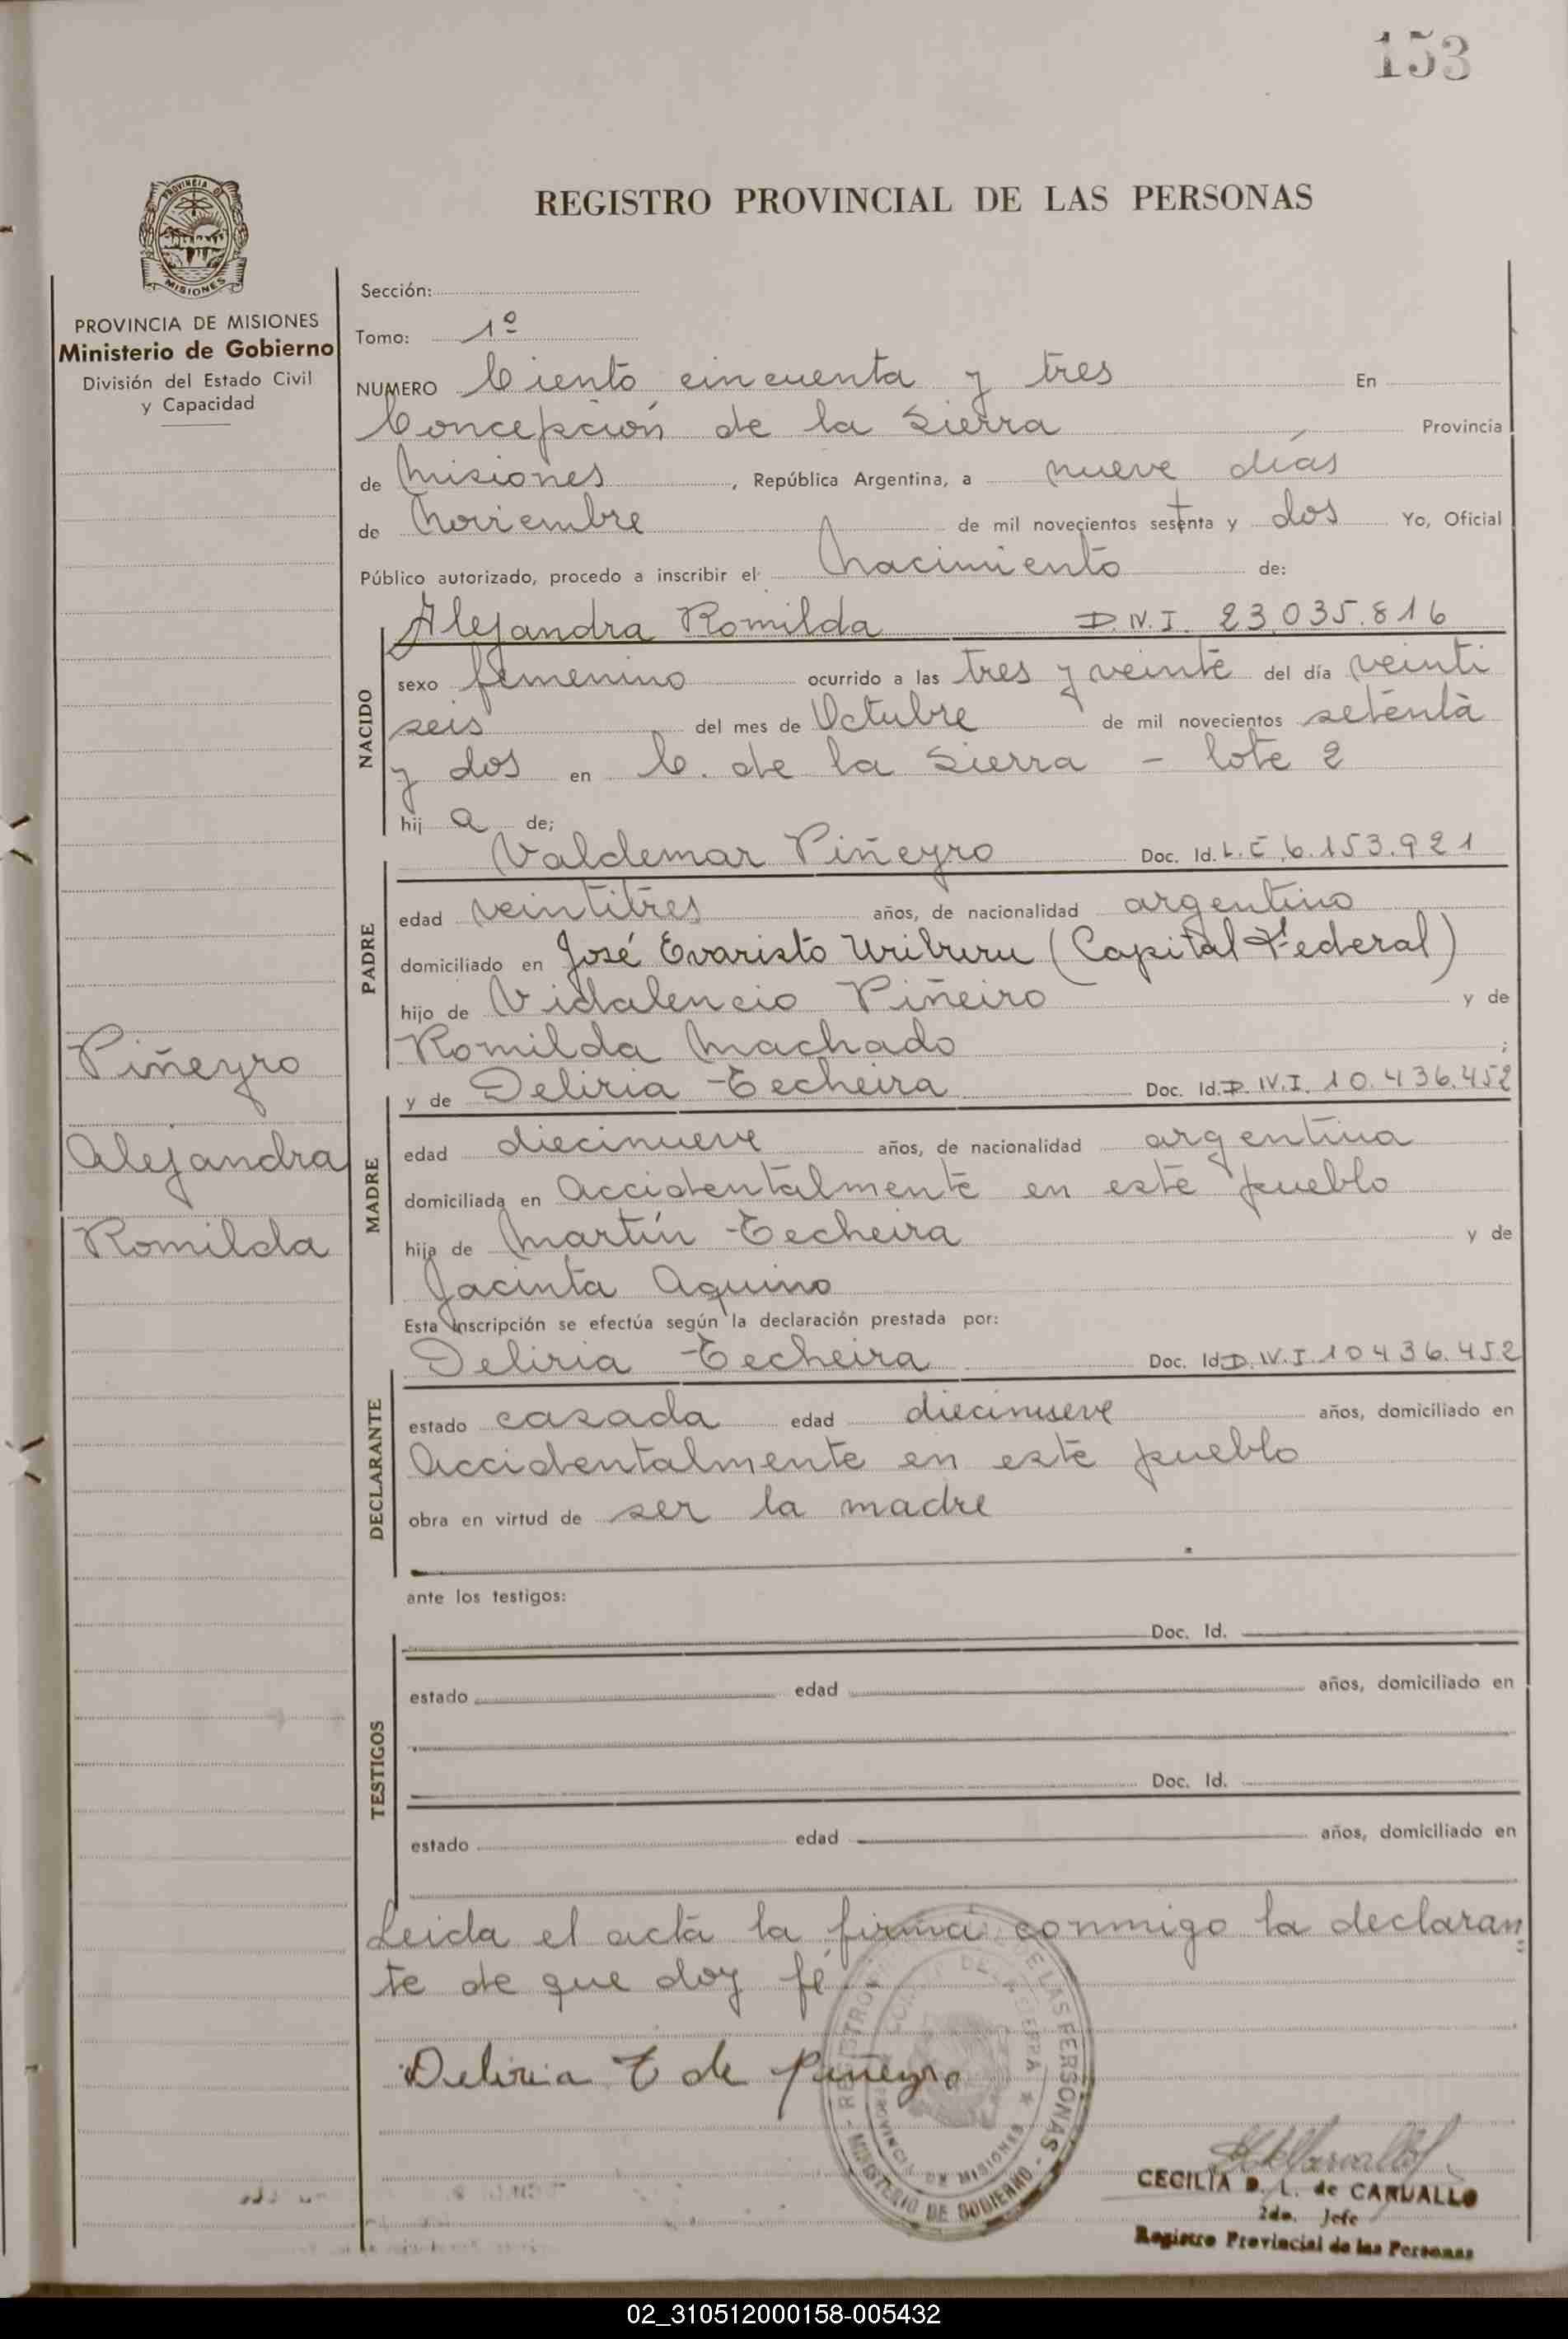 153
REGISTRO PROVINCIAL DE LAS PERSONAS
PROVINCIA DE MISIONES
MISIONES
PROVINCIA DE MISIONES
Ministerio de Gobierno
División del Estado Civil
y Capacidad
Sección:
Tomo: 1º
NUMERO Ciento cincuenta y tres En
Concepción de la Sierra Provincia
de Misiones, República Argentina, a nueve días
de Noviembre de mil novecientos setenta y dos Yo, Oficial
Público autorizado, procedo a inscribir el Nacimiento de:
NACIDO
Alejandra Romilda D.N.I. 23.035.816
sexo femenino ocurrido a las tres y veinte del día veinti
seis del mes de Octubre de mil novecientos setenta
y dos en C. de la Sierra - lote 2
hij a de;
PADRE
Valdemar Piñeyro Doc. Id. L.E. 6.153.921
edad veintitres años, de nacionalidad argentino
domiciliado en José Evaristo Uriburu (Capital Federal)
hijo de Vidalencio Piñeiro y de
Romilda Machado ;
Piñeyro
Alejandra
Romilda
MADRE
y de Deliria Techeira Doc. Id. D.N.I. 10.436.452
edad diecinueve años, de nacionalidad argentina
domiciliada en Accidentalmente en este pueblo
hija de Martín Techeira y de
Jacinta Aquino
Esta inscripción se efectúa según la declaración prestada por:
DECLARANTE
Deliria Techeira Doc. Id. D.N.I. 10436.452
estado casada edad diecinueve años, domiciliado en
Accidentalmente en este pueblo
obra en virtud de ser la madre
ante los testigos:
TESTIGOS
Doc. Id.
estado edad años, domiciliado en
Doc. Id.
estado edad años, domiciliado en
Leida el acta la firma conmigo la declaran=
te de que doy fé.
Deliria T de Piñeyro
REGISTRO DE LAS PERSONAS - MINISTERIO DE GOBIERNO -
DE LA SIERRA ★ PROVINCIA DE MISIONES
CECILIA D. L. de CARVALLO
2do. Jefe
Registro Provincial de las Personas
02_310512000158-005432